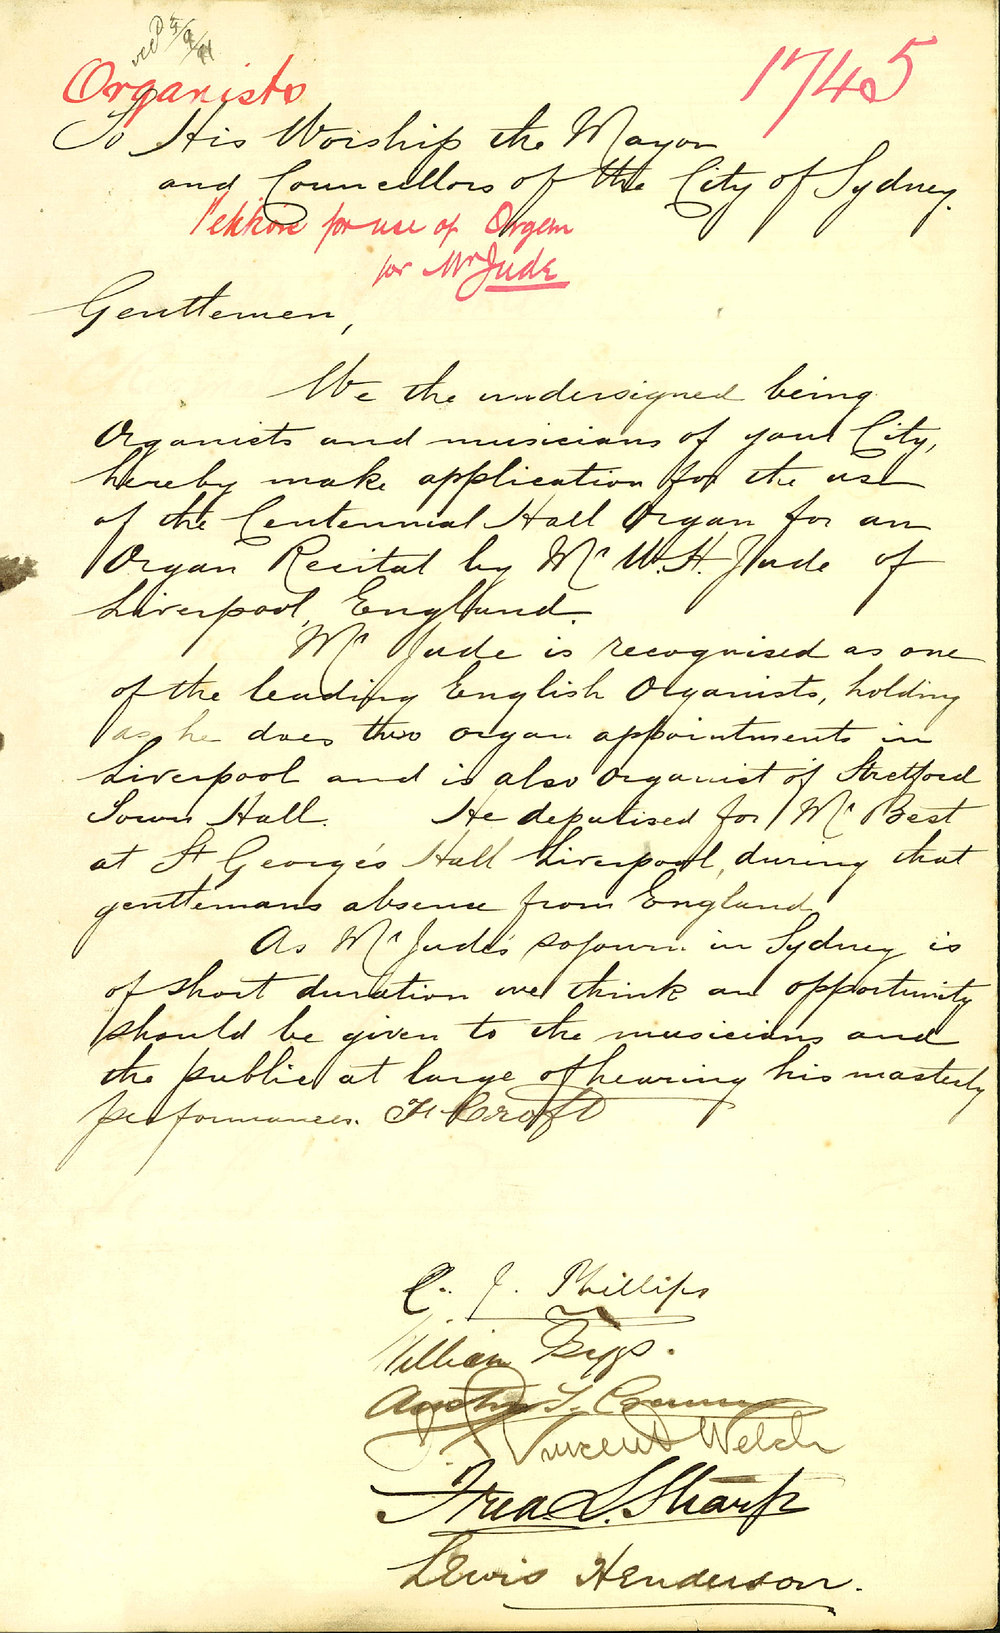 recd 5/9/91
Organists
1745
To His Worship the Mayor
and Councillors of the City of Sydney.
Petition for use of Organ
for Mr Jude
Gentlemen,
We the undersigned being
Organists and musicians of your City,
hereby make application for the use
of the Centennial Hall Organ for an
Organ Recital by Mr W. H. Jude of
Liverpool, England.
Mr Jude is recognised as one
of the leading English Organists, holding
as he does two organ appointments in
Liverpool and is also Organist of Stretford
Town Hall. He deputised for Mr Best
at St George's Hall Liverpool, during that
gentlemans absence from England
As Mr Jude's sojourn in Sydney is
of short duration we think an opportunity
should be given to the musicians and
the public at large of hearing his masterly
performances. H Croft
C. J. Phillips
William
J. Vincent Welch
Fred. L. Sharp
Lewis Henderson.